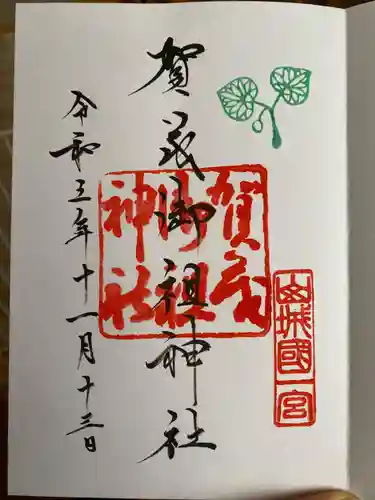 山城國一宮
賀茂御祖神社
賀茂
御祖
神社
令和三年十一月十三日